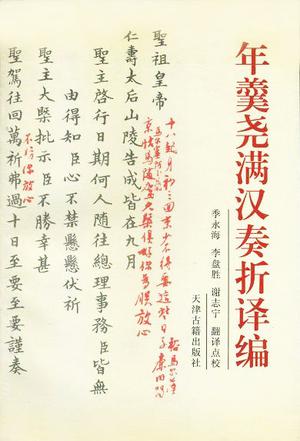 年羹尧满汉奏折译编
季永海 李盘胜 谢志宁 翻译点校
天津古籍出版社
聖祖皇帝
仁壽太后山陵告成皆在九月
聖主啓行日期何人随往總理事務臣皆無
由得知臣心不禁懸懸伏祈
聖主大槩批示臣不勝幸甚
聖駕往回萬祈弗過十日至要至要謹奏
放心